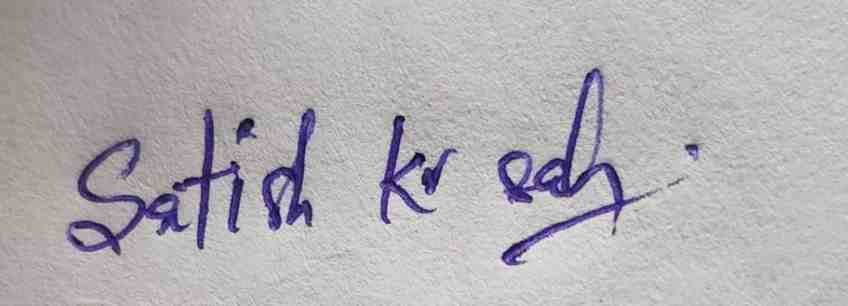 Satish Kr sah.